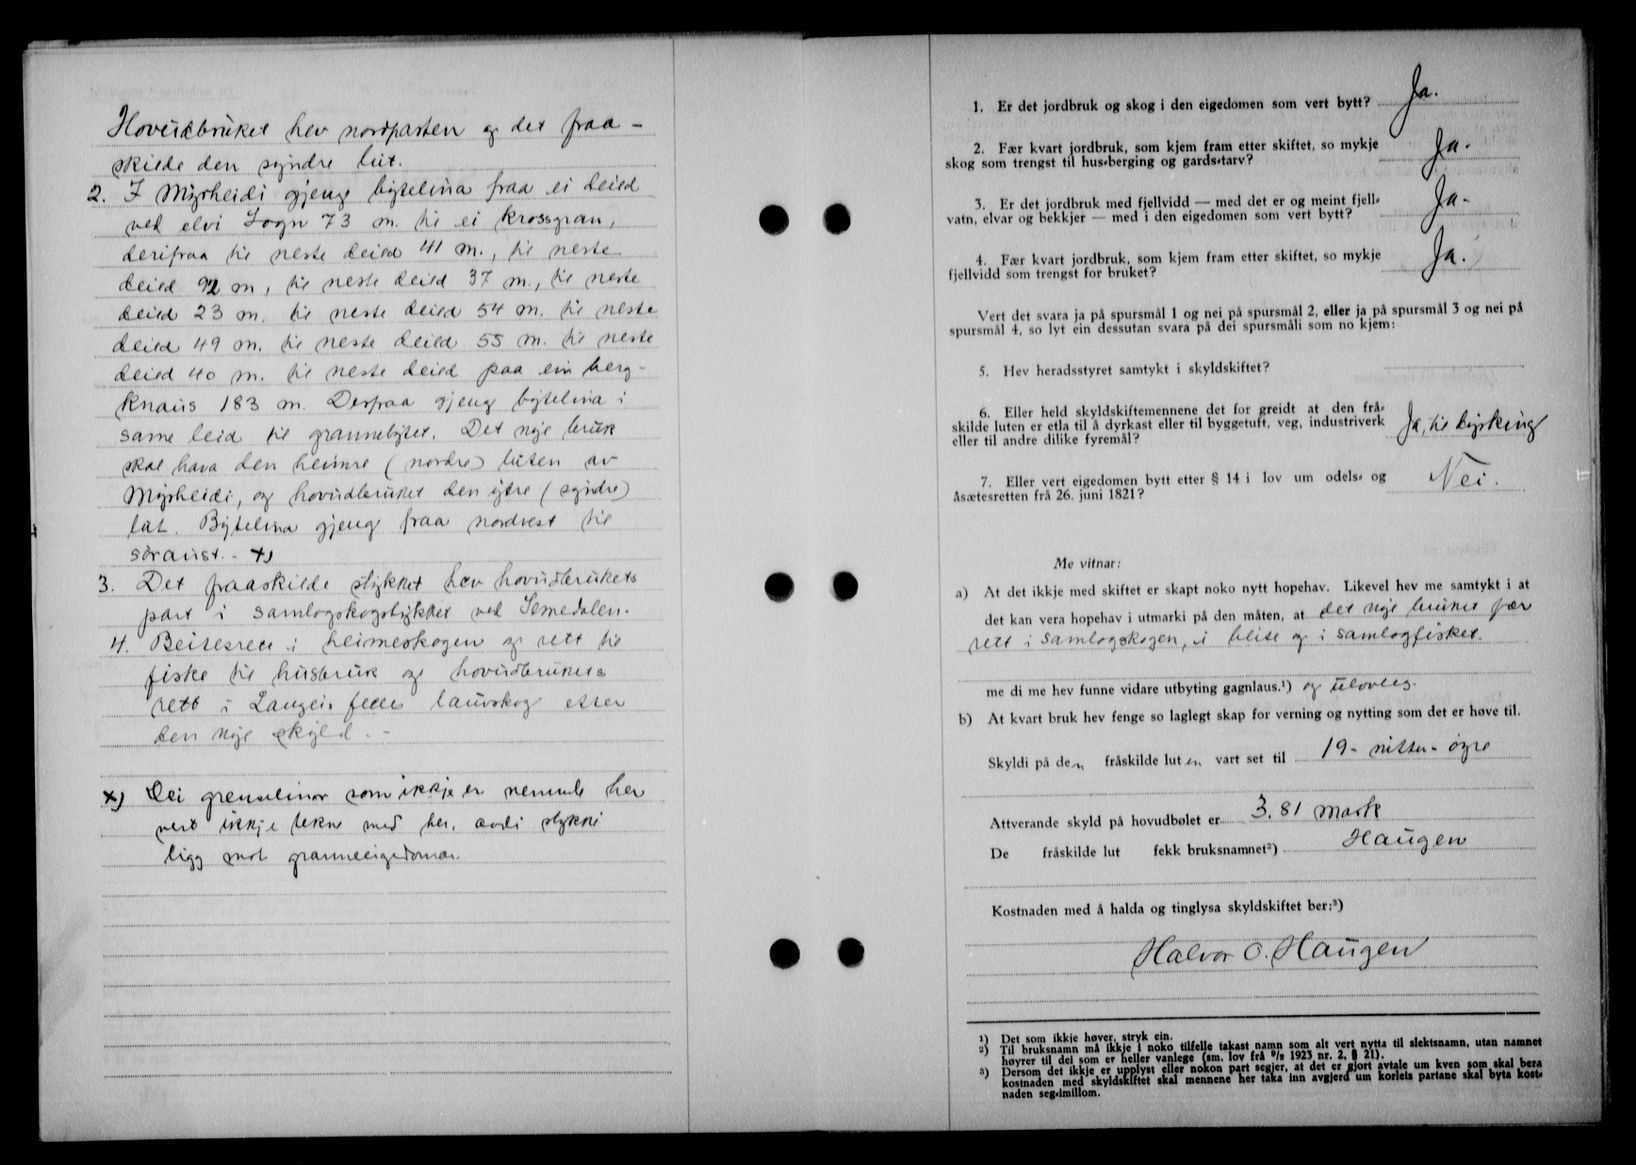 Hovudbruket hev nordparten og det fraa-
skilde den syndre lut.
2. I Myrheidi gjeng bytelina fraa ei deild
ved elvi Sogn 73 m. til ei krossgran,
derifraa til neste deild 41 m., til neste
deild 92 m, til neste deild 37 m., til neste
deild 23 m. til neste deild 54 m. til neste
deild 49 m. til neste deild 55 m. til neste
deild 40 m. til neste deild paa ein berg-
knaus 183 m. Derfraa gjeng bytelina i
same leid til grannebytet. Det nye bruk
skal hava den heimre (nordre) luten av
Myrheidi, og hovudbruket den ytre (syndre)
lut. Bytelina gjeng fraa nordvest til
søraust. - x)
3. Det fraaskilde stykket hev hovudbrukets
part i samlogskogstykket ved Semedalen.
4. Beitesrett i heimeskogen og rett til
fiske til husbruk og hovudbrukets
rett i felles lauvskog etter
den nye skyld. -
x) Dei grenselinor som ikkje er nemnde her
vert ikkje tekne med her, avdi stykki
ligg mot granneeigedomar.
1. Er det jordbruk og skog i den eigedomen som vert bytt? Ja.
2. Fær kvart jordbruk, som kjem fram etter skiftet, so mykje
skog som trengst til hus-berging og gards-tarv? Ja.
3. Er det jordbruk med fjellvidd — med det er og meint fjell-
vatn, elvar og bekkjer — med i den eigedomen som vert bytt? Ja.
4. Fær kvart jordbruk, som kjem fram etter skiftet, so mykje
fjellvidd som trengst for bruket? Ja.
Vert det svara ja på spursmål 1 og nei på spursmål 2, eller ja på spursmål 3 og nei på
spursmål 4, so lyt ein dessutan svara på dei spursmåli som no kjem:
5. Hev heradsstyret samtykt i skyldskiftet?
6. Eller held skyldskiftemennene det for greidt at den frå-
skilde luten er etla til å dyrkast eller til byggetuft, veg, industriverk
eller til andre dilike fyremål? Ja, til dyrking
7. Eller vert eigedomen bytt etter § 14 i lov um odels- og
åsætesretten frå 26. juni 1821? Nei.
Me vitnar:
a) At det ikkje med skiftet er skapt noko nytt hopehav. Likevel hev me samtykt i at
det kan vera hopehav i utmarki på den måten, at det nye bruket fær
rett i samlogskogen, i beite og i samlogfisket.
me di me hev funne vidare utbyting gagnlaus.¹) og ulovleg.
b) At kvart bruk hev fenge so laglegt skap for verning og nytting som det er høve til.
Skyldi på den fråskilde luten vart set til 19 - nitten - øyre
Attverande skyld på hovudbølet er 3.81 mark
De fråskilde lut fekk bruksnamnet²) Haugen
Kostnaden med å halda og tinglysa skyldskiftet ber:³)
Halvor O. Haugen
¹) Det som ikkje høver, stryk ein.
²) Til bruksnamn må ikkje i noko tilfelle takast namn som alt vert nytta til slektsnamn, utan namnet
høyrer til dei som er heller vanlege (sm. lov frå ⁹/₂ 1923 nr. 2, § 21).
³) Dersom det ikkje er upplyst eller nokon part segjer, at det er gjort avtale um kven som skal bera
kostnaden med skyldskiftet skal mennene her taka inn avgjerd um korleis partane skal byta kost-
naden seg-imillom.